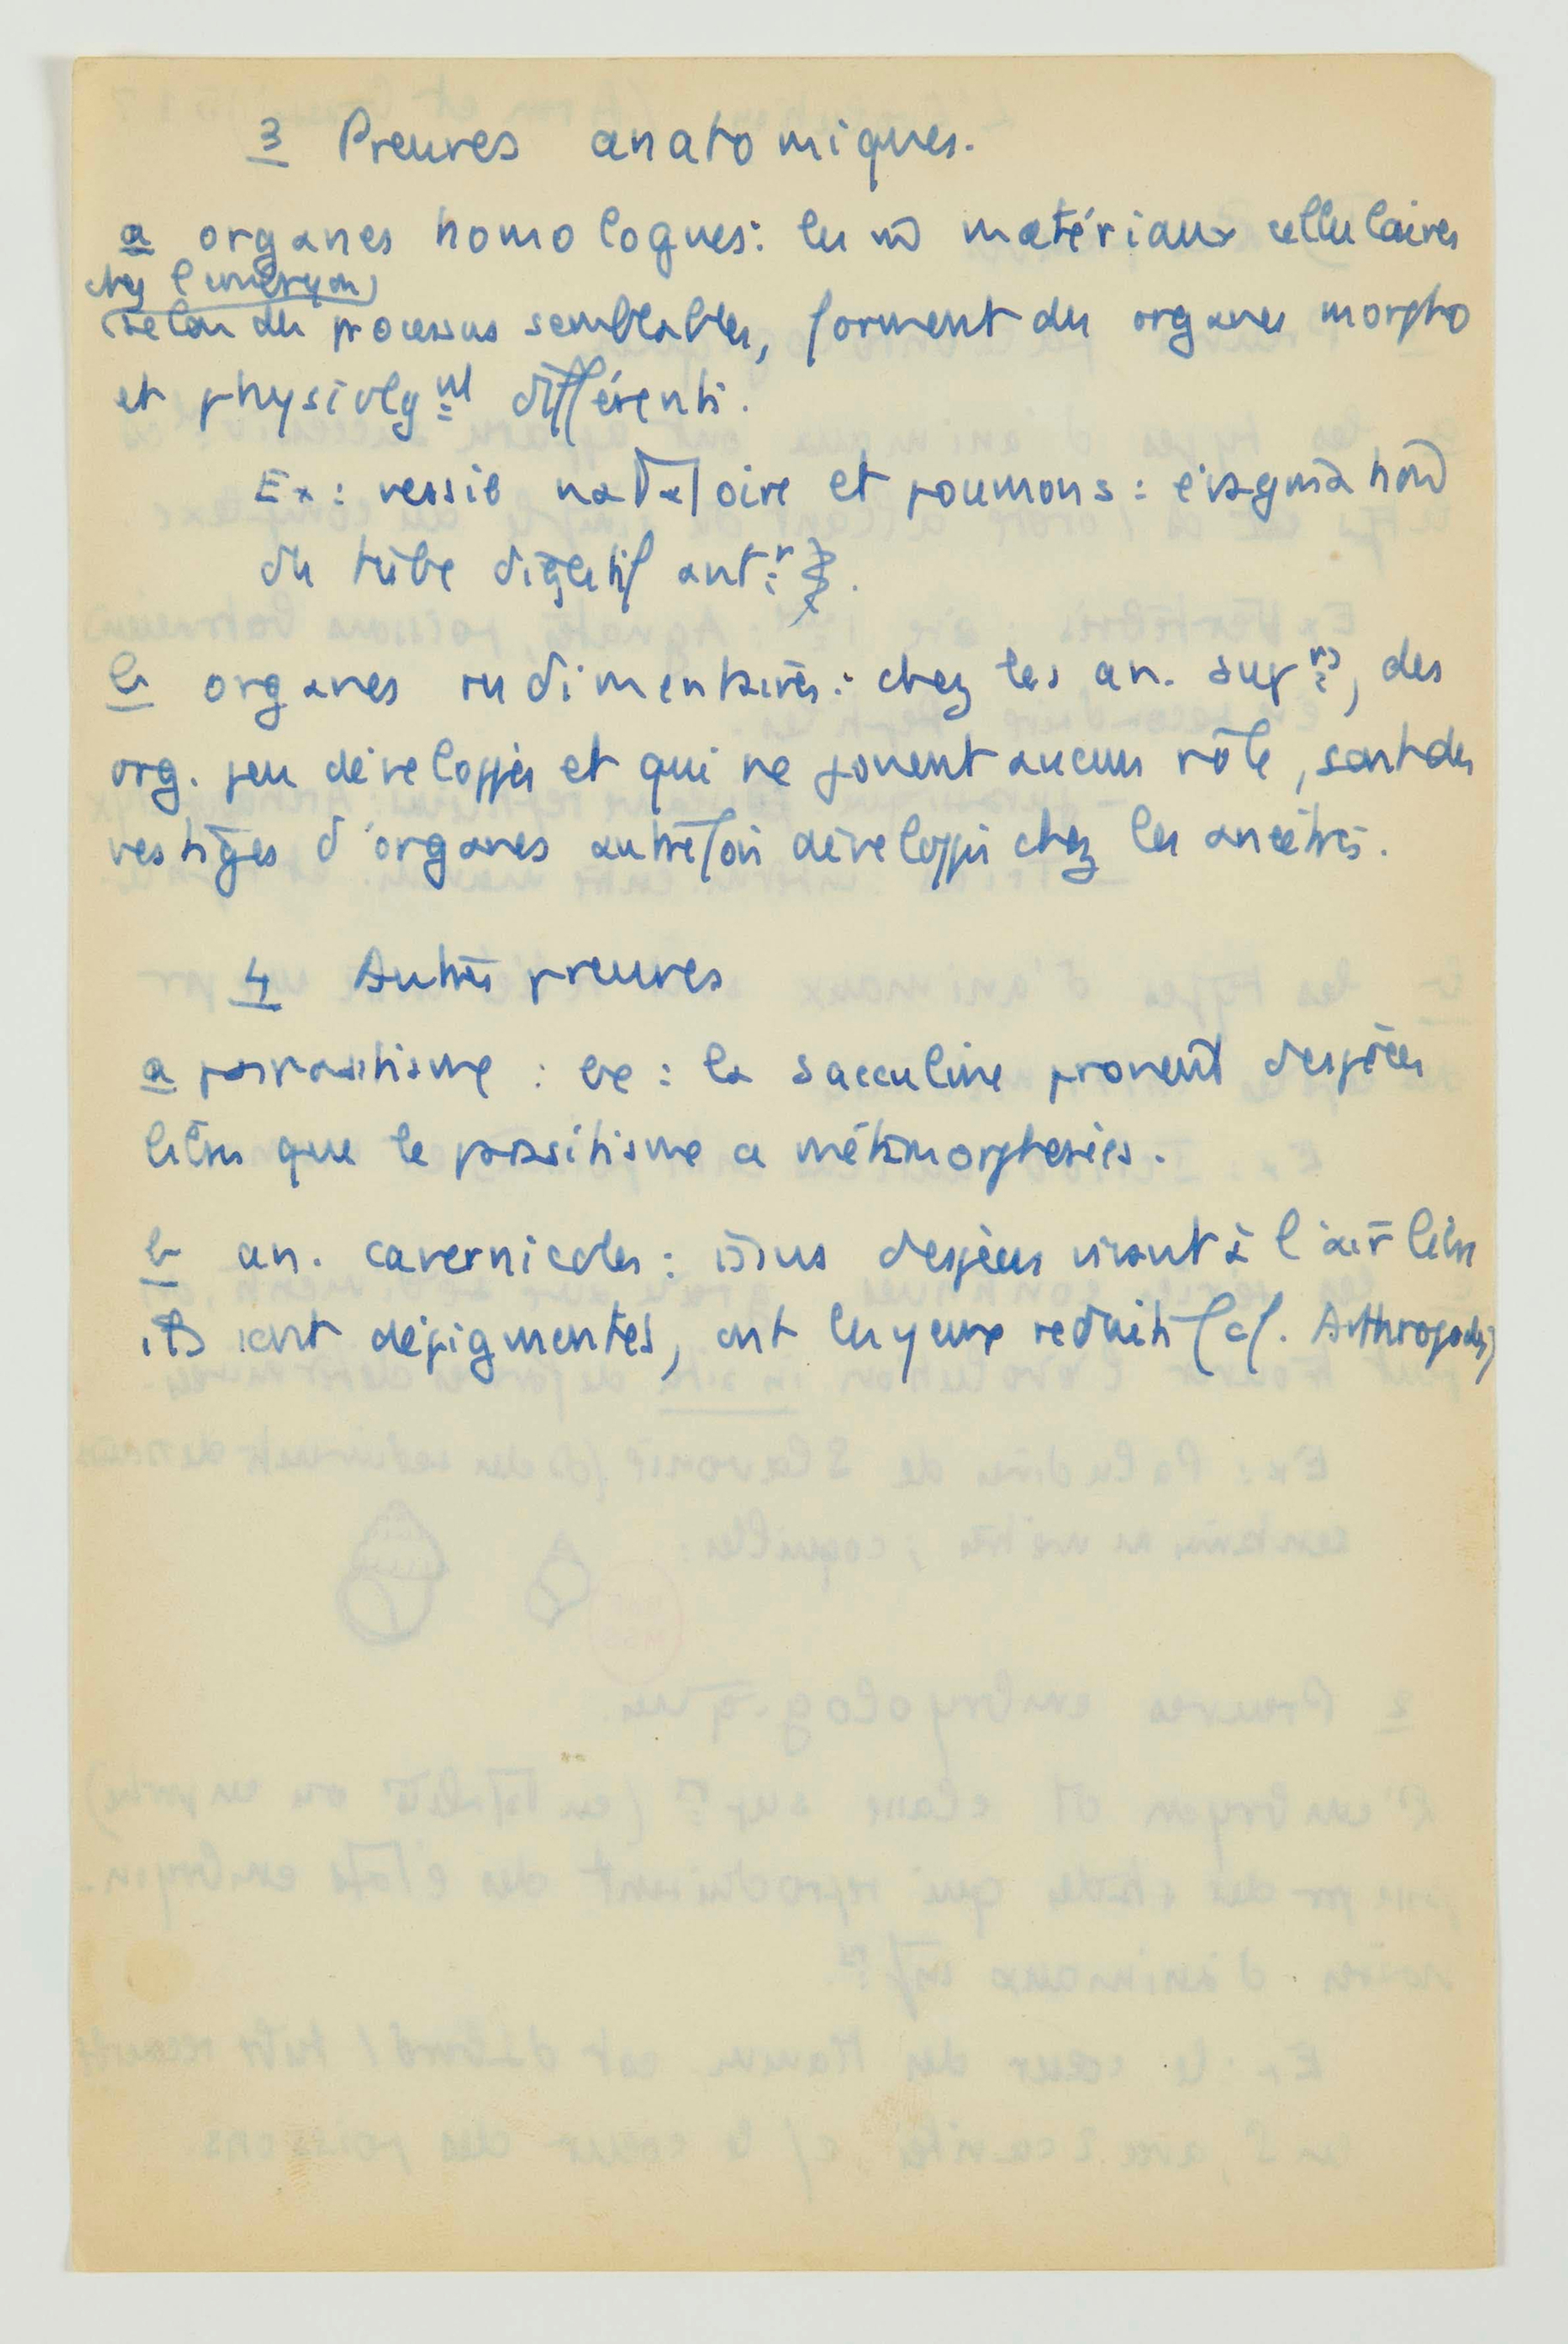 3 Preuves anatomiques.
a organes homologues: les m̂ matériaux cellulaires
chez l'embryon
selon des processus semblables, forment des organes morpho
et physiolgnt différents.
Ex: vessie natatoire et poumons:
du tube digestif antr.
b organes rudimentaires: chez les an. suprs, des
org. peu développés et qui ne jouent aucun rôle, sont des
vestiges d'organes autrefois développés chez les ancêtres.
4 Autres preuves
a parasitisme: ex: la sacculine provent d'espèces
libres que le parasitisme a métamorphosées.
b an. cavernicoles: issus d'espèces vivant à l'air libre
ils sont dépigmentés, ont les yeux réduits (cf. Arthropodes)